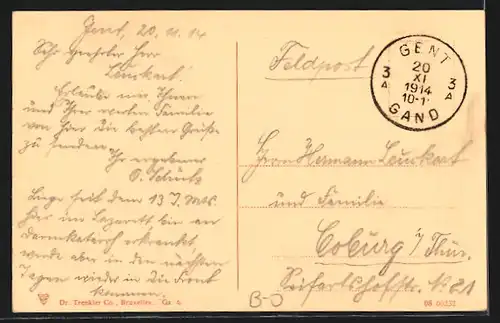 Gent, 20. 11. 14
Sehr geehrter Herr
Leuckart!
Erlaube mir, Ihnen
und Ihrer werten Familie
von hier die besten Grüße
zu senden.
Ihr ergebener
O. Schütz
Liege seit dem 13. d. Mts.
hier im Lazarett bin an
Darmkatarrh erkrankt,
werde aber in den nächsten
Tagen wieder in die Front
kommen.
Feldpost
GENT
3 20 3
XI
1914
10-1
GAND
Herrn Hermann Leuckart
und Familie
Coburg i/Thür.
Seifartshofstr. N. 21
B-O
Dr. Trenkler Co., Bruxelles. Ga. 4.